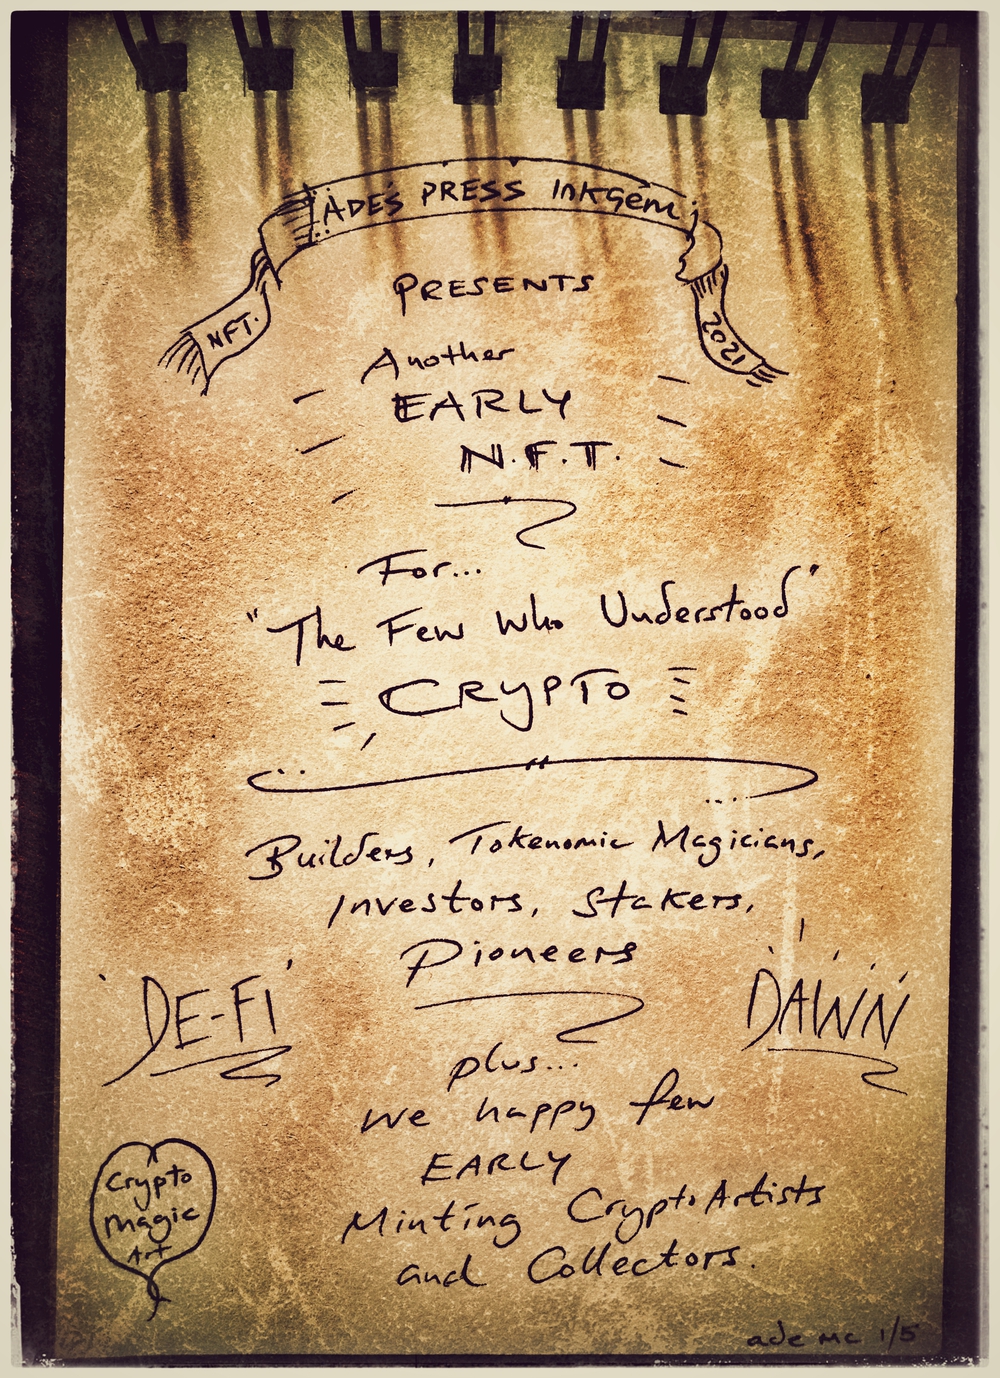 ADE'S PRESS INKGEM
NFT.
2021
PRESENTS
Another
EARLY
N.F.T.
For...
"The Few Who Understood"
CRYPTO
Builders, Tokenomic Magicians,
Investors, Stakers,
Pioneers
'DE-FI'
DAWN
plus...
We happy few
EARLY
Minting CryptoArtists
and Collectors.
Crypto
Magic
Art
ade mc 1/5